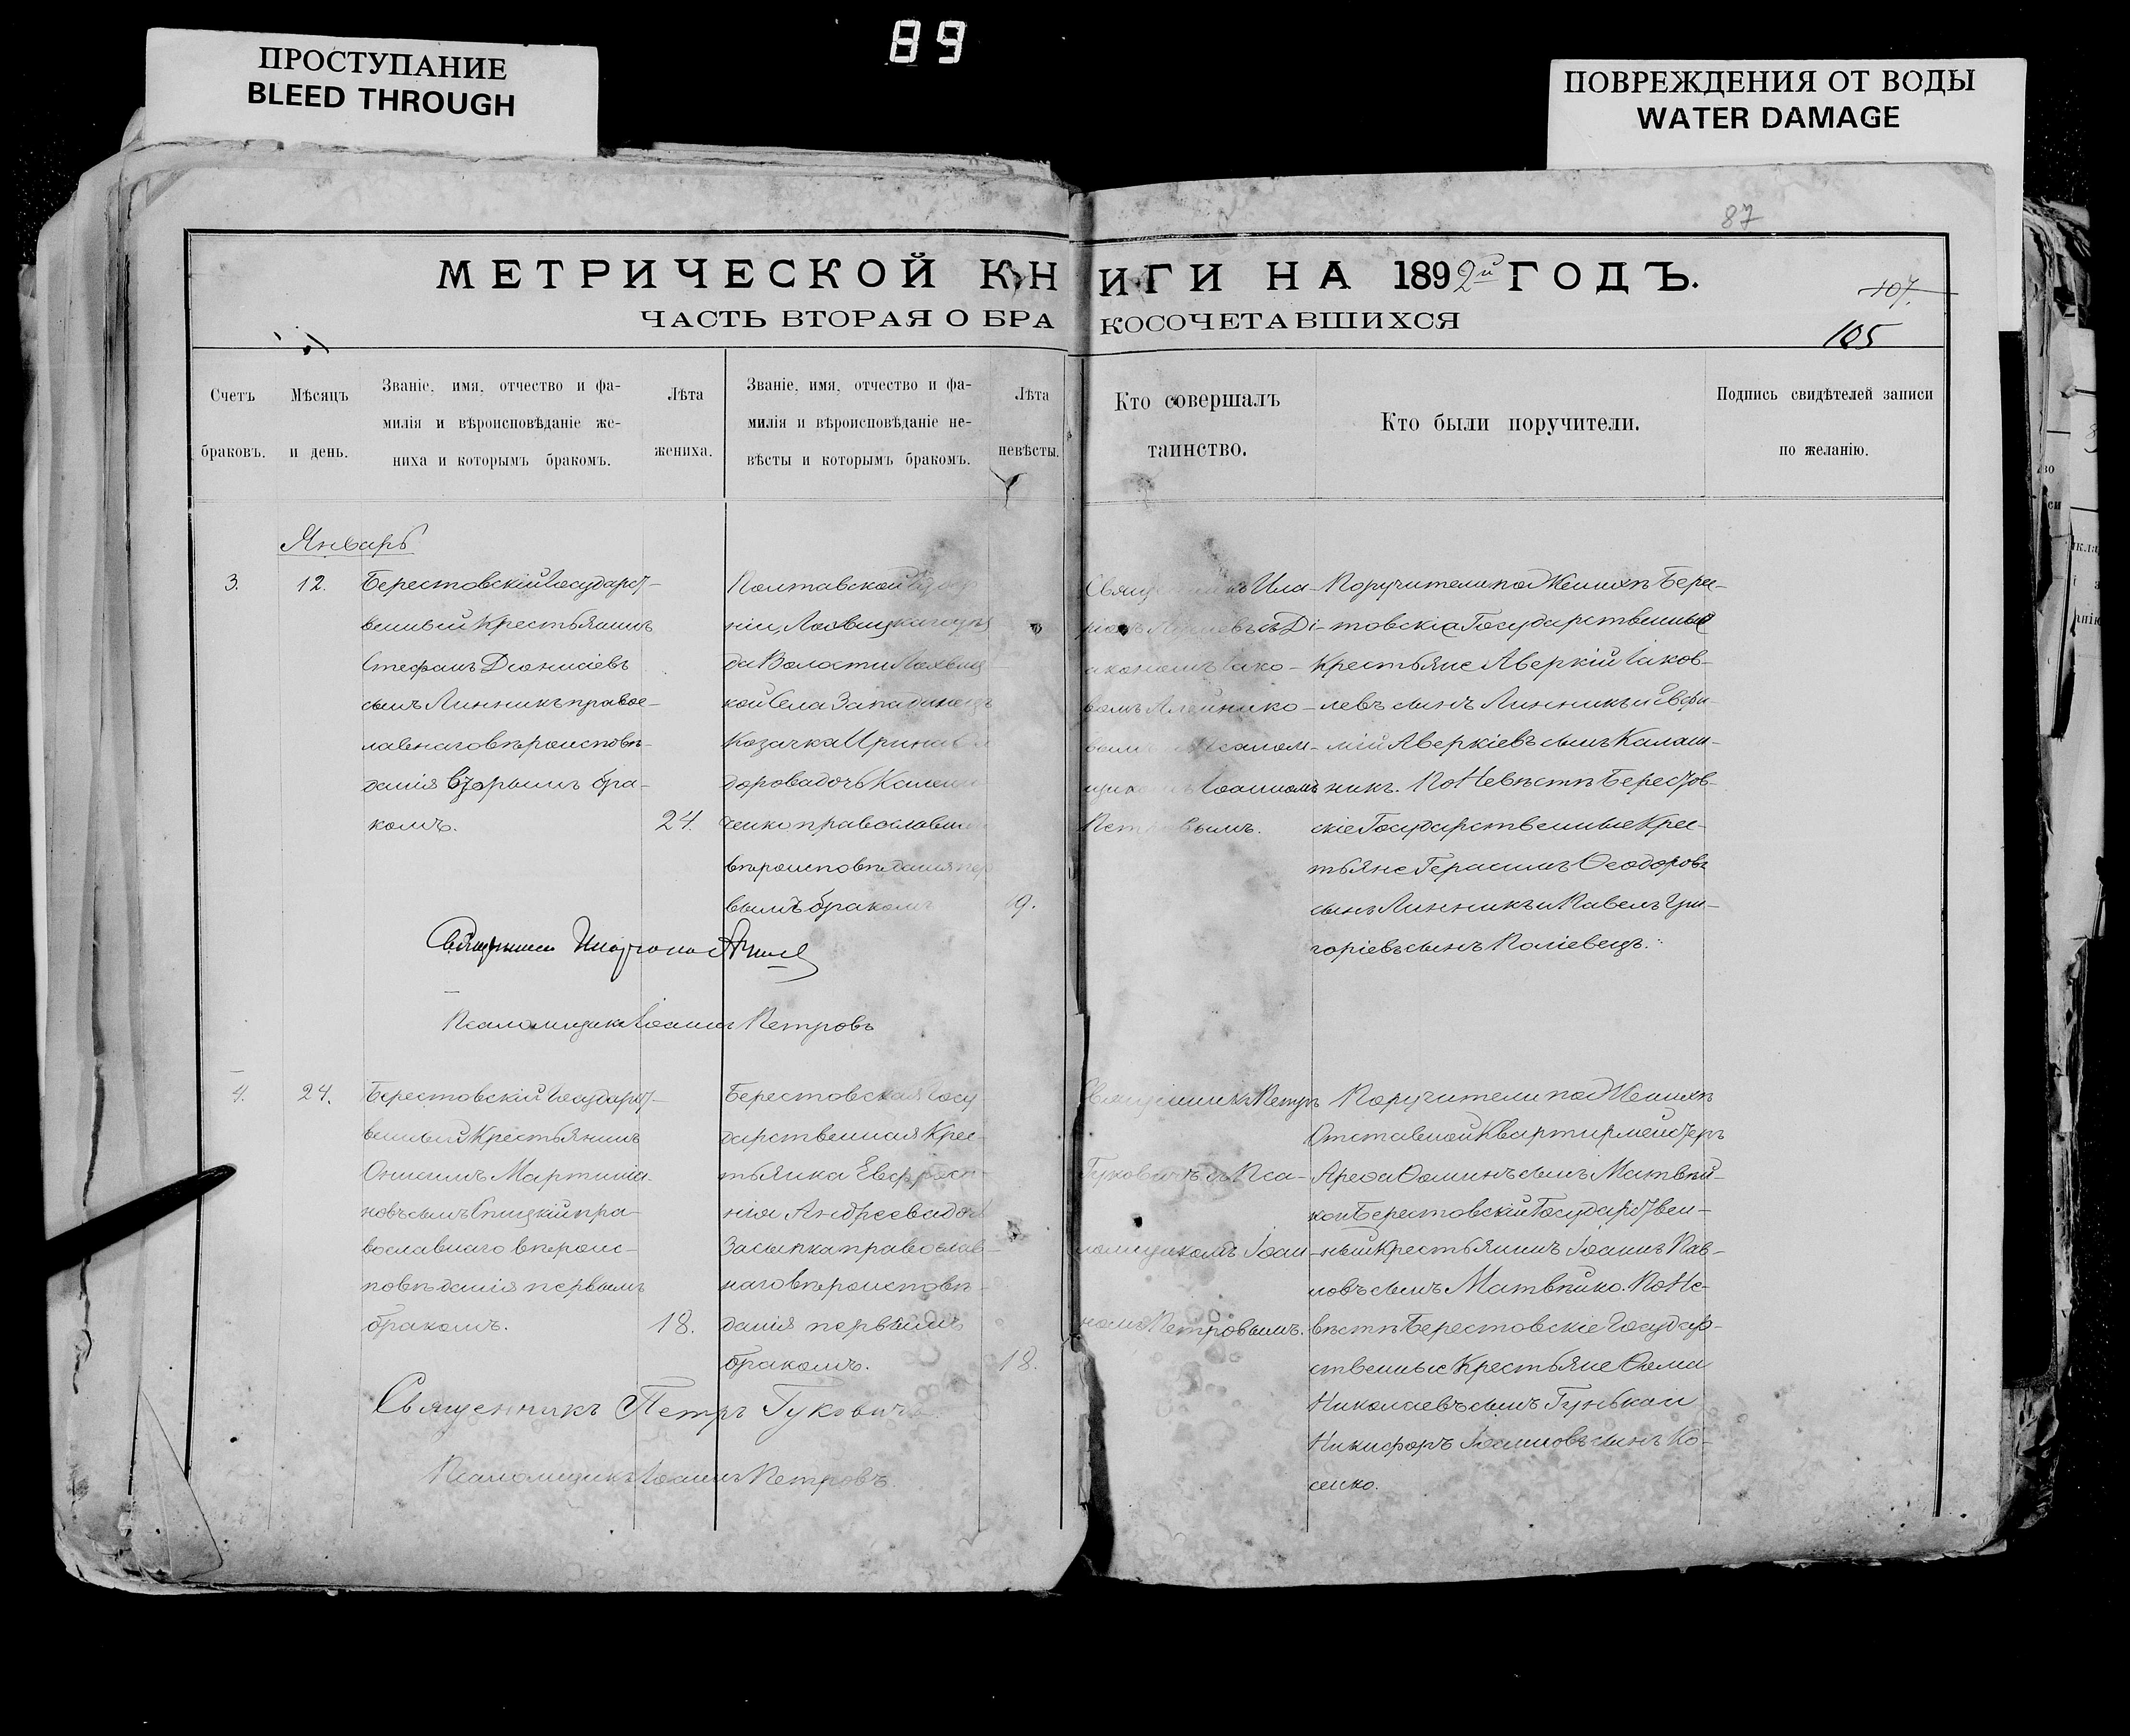 89
ПРОСТУПАНИЕ
BLEED THROUGH
ПОВРЕЖДЕНИЯ ОТ ВОДЫ
WATER DAMAGE
87
МЕТРИЧЕСКОЙ КНИГИ НА 1892й ГОДЪ.
107.
ЧАСТЬ ВТОРАЯ О БРАКОСОЧЕТАВШИХСЯ
105
Счетъ
браковъ.
Мѣсяцъ
и день.
Званіе, имя, отчество и фа-
милія и вѣроисповѣданіе же-
ниха и которымъ бракомъ.
Лѣта
жениха.
Званіе, имя, отчество и фа-
милія и вѣроисповѣданіе не-
вѣсты и которымъ бракомъ.
Лѣта
невѣсты.
Кто совершалъ
таинство.
Кто были поручители.
Подпись свидѣтелей записи
по желанію.
Январь
3.
12.
Берестовскій Государст-
венный Крестьянинъ
Стефанъ Діонисіевъ
сынъ Линникъ правос-
лавнаго вѣроисповѣ-
данія вторымъ бра-
комъ.
24.
Полтавской
ніи, Лохвицкаго уѣз
да Волости Лохвиц
кой Села Западинецъ
Козачка Ирина
дорова дочь
ченко православн
вѣроисповѣданія пер
вымъ бракомъ
19.
Ила-
съ Ді-
акономъ Іако-
вомъ Алейнико-
вымъ Псалом-
Іоанномъ
Петровымъ.
Поручители по Женихѣ Берес-
товскіе Государственные
Крестьяне Аверкій Іаков-
левъ сынъ Линникъ и Евфи-
мій Аверкіевъ сынъ Калаш-
никъ. По Невѣстѣ Берестов-
скіе Государственные Крес-
тьяне Герасимъ Ѳеодоровъ
сынъ Линникъ и Павелъ Гри-
горіевъ сынъ Поліевецъ.
Священник
Псаломщикъ Іоаннъ Петровъ
4.
24.
Берестовскій Государст-
венный Крестьянинъ
Онисимъ Мартиніа-
новъ сынъ Спицкій пра-
вославнаго вѣроис-
повѣданія первымъ
бракомъ.
18.
Берестовская Госу
дарственная Крес-
тьянка Евфроси-
нія Андреева дочь
Засыпка православ-
наго вѣроисповѣ-
данія первымъ
бракомъ.
18.
Священникъ Петръ
Гуковичъ съ Пса-
ломщикомъ Іоан-
номъ Петровымъ.
Поручители по Женихѣ
Отставной Квартирмейстеръ
Арефа Ѳоминъ сынъ Матвѣй-
ко и Берестовскій Государствен-
ный Крестьянинъ Іоаннъ Пав-
ловъ сынъ Матвѣйко. По Не-
вѣстѣ Берестовскіе Государ-
ственные Крестьяне Ѳома
Николаевъ сынъ Гунька и
Никифоръ Іоанновъ сынъ Ко-
сенко.
Священникъ Петръ Гуковичъ
Псаломщикъ Іоаннъ Петровъ